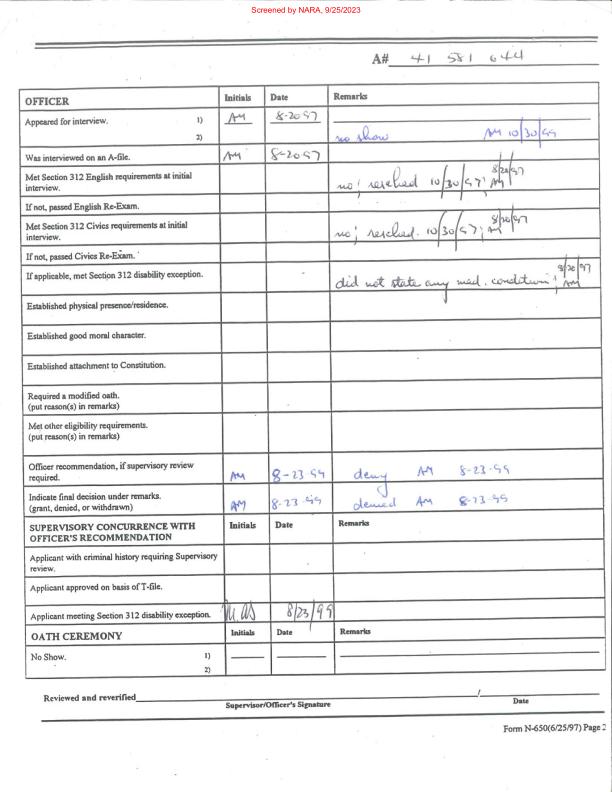 Screened by NARA, 9/25/2023
A# 41 581 644
OFFICER Initials Date Remarks
Appeared for interview. 1) AM 8-20 97
2) no show AM 10/30/99
Was interviewed on an A-file. AM 8-20 97
Met Section 312 English requirements at initial no; resched 10/30/97; AM 8/20/97
interview.
If not, passed English Re-Exam.
Met Section 312 Civics requirements at initial no; resched. 10/30/97; AM 8/20/97
interview.
If not, passed Civics Re-Exam.
If applicable, met Section 312 disability exception. did not state any med. condition; AM 8/20/97
Established physical presence/residence.
Established good moral character.
Established attachment to Constitution.
Required a modified oath.
(put reason(s) in remarks)
Met other eligibility requirements.
(put reason(s) in remarks)
Officer recommendation, if supervisory review AM 8-23-99 deny AM 8-23-99
required.
Indicate final decision under remarks. AM 8-23-99 denied AM 8-23-99
(grant, denied, or withdrawn)
SUPERVISORY CONCURRENCE WITH Initials Date Remarks
OFFICER'S RECOMMENDATION
Applicant with criminal history requiring Supervisory
review.
Applicant approved on basis of T-file.
Applicant meeting Section 312 disability exception. 8/23/99
OATH CEREMONY Initials Date Remarks
No Show. 1)
2)
Reviewed and reverified
Supervisor/Officer's Signature Date
Form N-650(6/25/97) Page 2